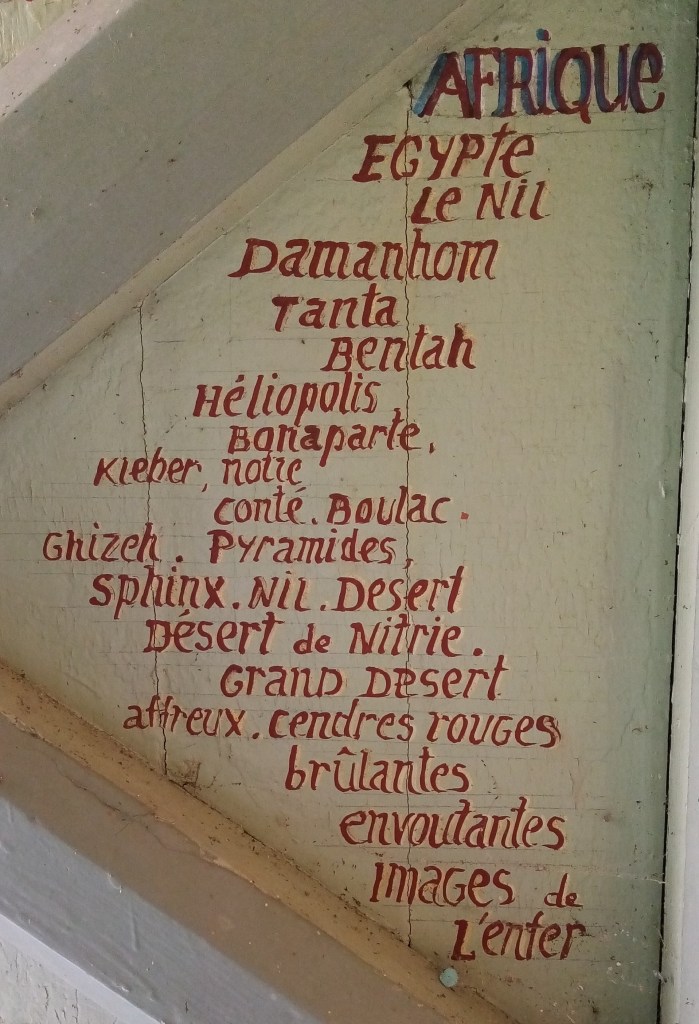 AFRIQUE
EGYPte
Le Nil
Damanhom
Tanta
Bentah
Héliopolis
Bonaparte,
Kleber, notic
conté. Boulac.
Ghizeh. Pyramides,
sphinx. Nil. Desert
Désert de Nitrie.
GRAND Desert
affreux. cendres rouges
brûlantes
envoutantes
Images de
L'enfer